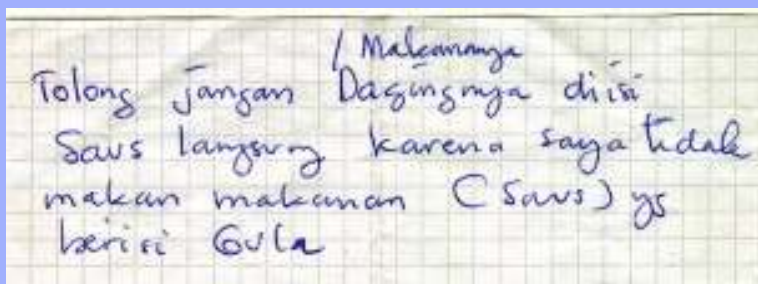 / Makanannya
Tolong jangan Dagingnya diisi
Saus langsung karena saya tidak
makan makanan (Saus) yg
berisi Gula